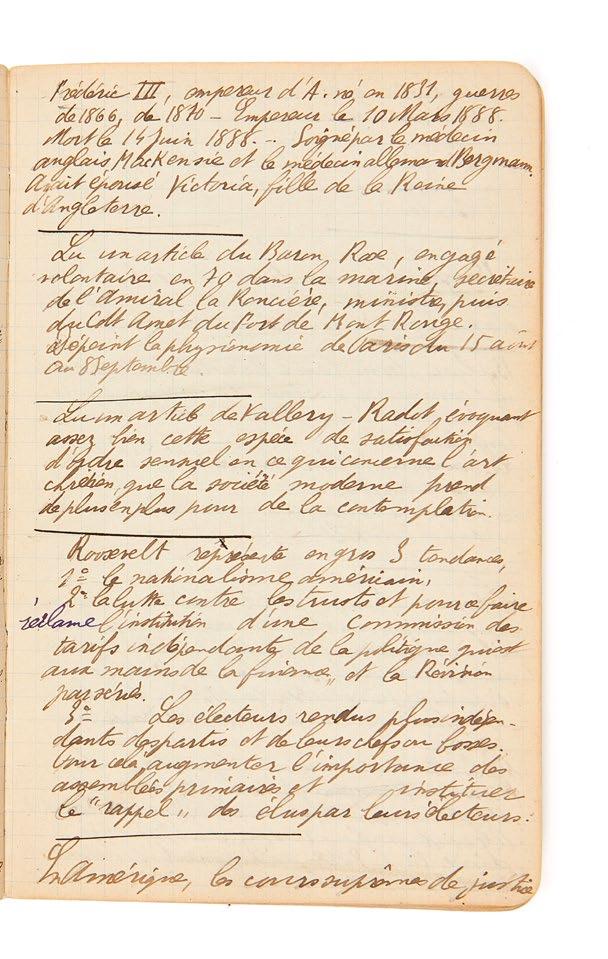 Frédéric III, empereur d'A. né en 1831, guerres
de 1866, de 1870 - Empereur le 10 Mars 1888.
Mort le 14 Juin 1888. - Soigné par le médecin
anglais MacKensie et le médecin allemand Bergmann.
Avait épousé Victoria, fille de la Reine
d'Angleterre.
Lu un article du Baron Roze, engagé
volontaire en 70 dans la marine, secrétaire
de l'Amiral la Roncière, ministre, puis
du Cdt Amet du Fort de Mont Rouge.
dépeint la physionomie de Paris du 15 août
au 8 Septembre.
Lu un article de Vallery-Radot, évoquant
assez bien cette espèce de satisfaction
d'ordre sensuel en ce qui concerne l'art
chrétien, que la société moderne prend
de plus en plus pour de la contemplation.
Roosevelt représente en gros 3 tendances,
1º le nationalisme américain,
2º la lutte contre les trusts et pour ce faire
réclame l'institution d'une commission des
tarifs indépendante de la politique qui est
aux mains de la finance, et la Révision
par séries.
3º Les électeurs rendus plus indépen-
dants des partis et de leurs chefs ou bosses.
Pour cela, augmenter l'importance des
assemblées primaires et instituer
le "rappel" des élus par leurs électeurs.
En Amérique, les cours suprêmes de justice